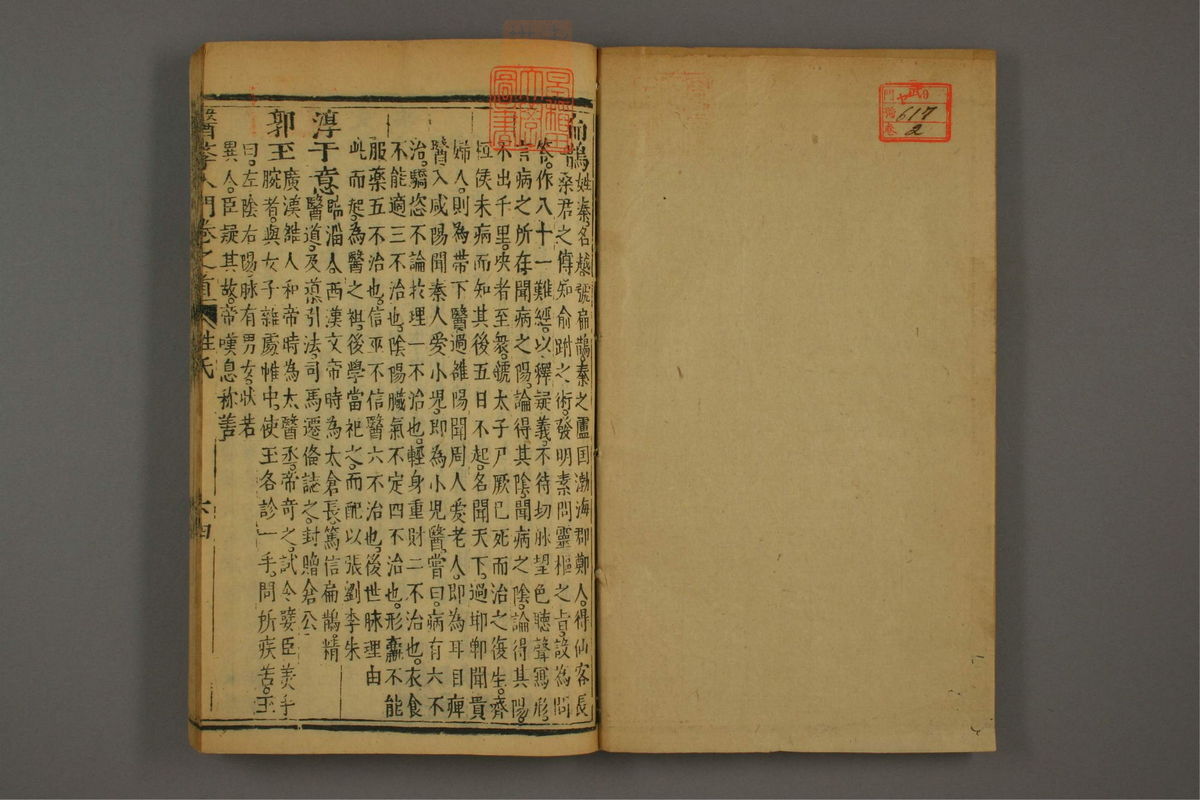 扁鵲姓秦名越人號扁鵲秦之盧国渤海郡鄭人得仙客長
桑君之傳知俞跗之術發明素問靈樞之旨設為問
答作八十一難經以釋疑義不待切脉望色聽聲寫形
言病之所在聞病之陽論得其陰聞病之陰論得其陽
不出千里决者至衆虢太子尸厥已死而治之復生齊
桓侯未病而知其後五日不起名聞天下過邯鄲聞貴
婦人則為帶下醫過雒陽聞周人愛老人即為耳目痺
醫入咸陽聞秦人愛小兒即為小兒醫嘗曰病有六不
治驕恣不論於理一不治也輕身重財二不治也衣食
不能適三不治也陰陽臟氣不定四不治也形羸不能
服藥五不治也信巫不信醫六不治也後世脉理由
此而起為醫之祖後學當祀之而配以張劉李朱
淳于意臨淄人西漢文帝時為太倉長篤信扁鵲精
醫道及導引法司馬遷俻誌之封贈倉公
郭玉廣漢雒人和帝時為太醫丞帝奇之試令嬖臣美手
腕者與女子雜處帷中使玉各診一手問所疾苦玉
曰左陰右陽脉有男女状若
異人臣疑其故帝嘆息称善
醫學入門卷之首 姓氏
六四
617
2